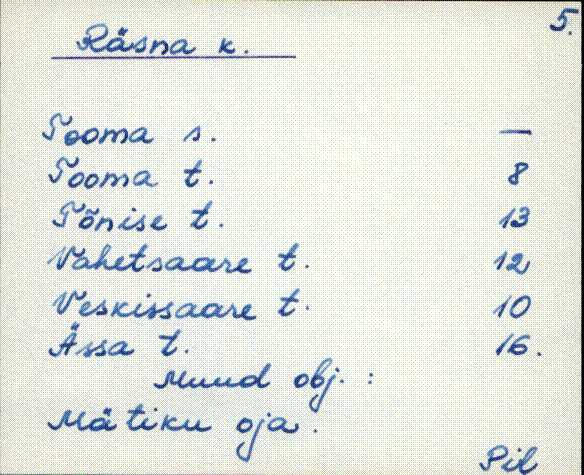 5.
Räsna k.
Tooma s. —
Tooma t. 8
Tõnise t. 13
Vahetsaare t. 12
Veskissaare t. 10
Ässa t. 16.
Muud obj. :
Mätiku oja.
Pil